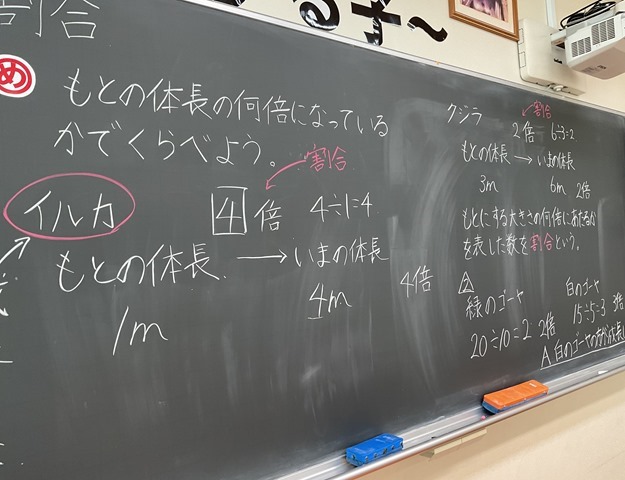 割合
め
もとの体長の何倍になっている
かでくらべよう。
割合
イルカ
4倍 4÷1=4
もとの体長 → いまの体長
1m
4m
4倍
クジラ
割合
2倍 6÷3=2
もとの体長 → いまの体長
3m 6m 2倍
もとにする大きさの何倍にあたるか
を表した数を割合という。
2
緑のゴーヤ
20÷10=2 2倍
白のゴーヤ
15÷5=3 3倍
A 白のゴーヤの方が成長